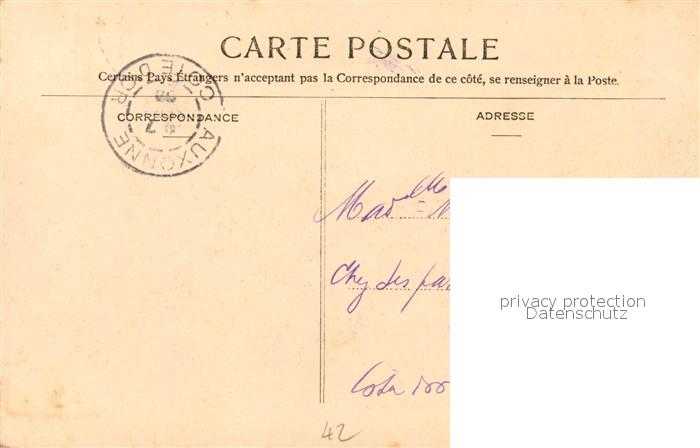 CARTE POSTALE
Certains Pays Étrangers n'acceptent pas la Correspondance de ce côté, se renseigner à la Poste.
CORRESPONDANCE
ADRESSE
AUXONNE
CÔTE D'OR
Madelle
Chez ses
privacy protection
Datenschutz
42